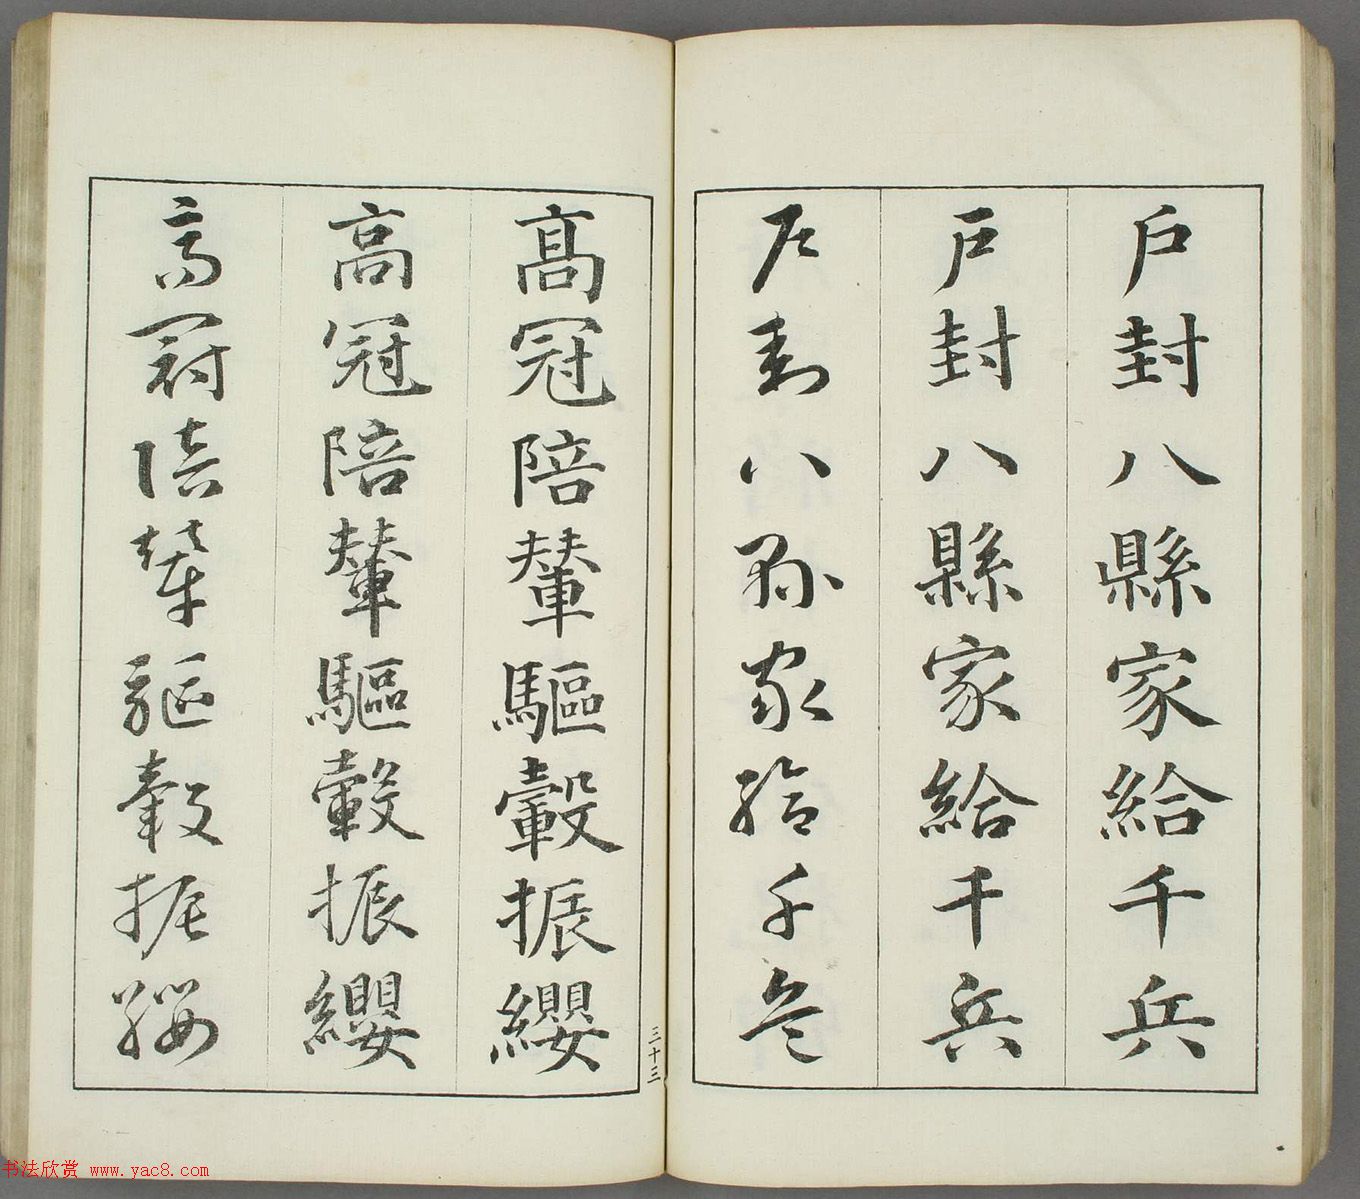 戶封八縣家給千兵
戶封八縣家給千兵
戶封八縣家給千兵
高冠陪輦驅轂振纓
高冠陪輦驅轂振纓
高冠陪輦驅轂振纓
三十三
书法欣赏 www.yac8.com